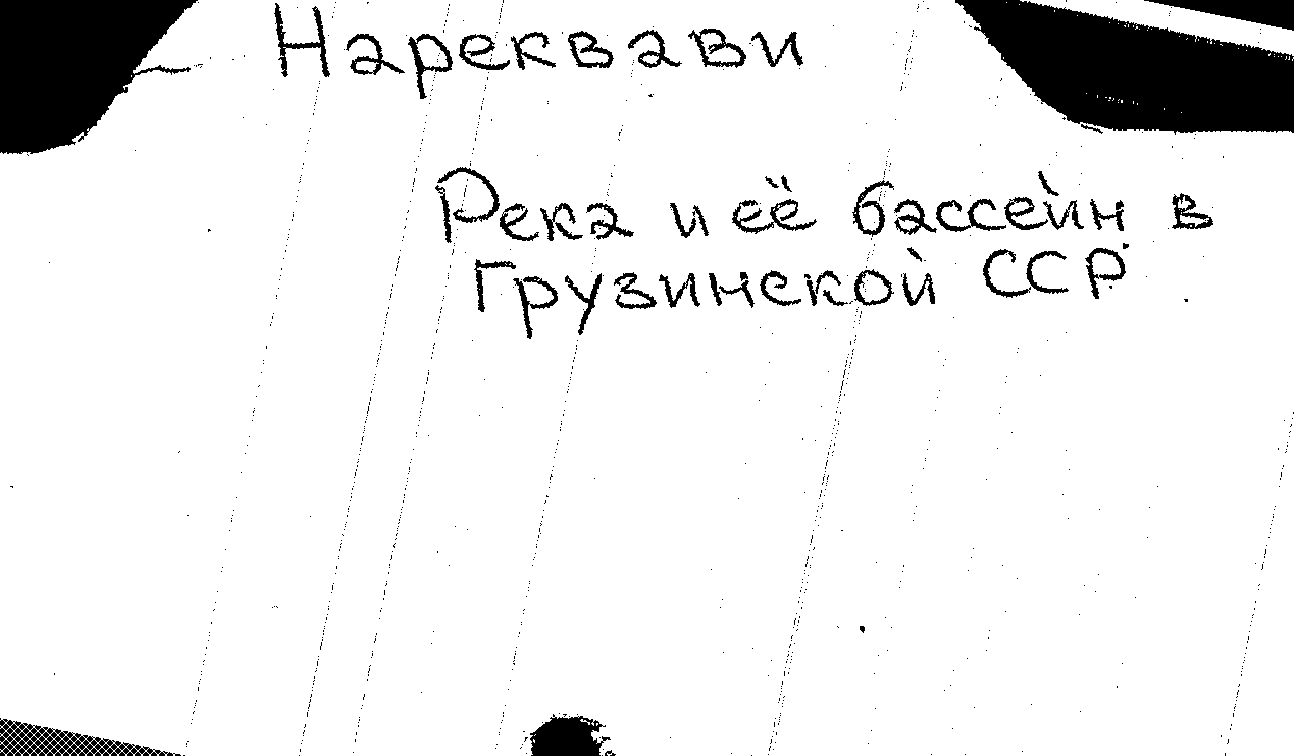 Нареквави
Река и её бассейн в
Грузинской ССР.